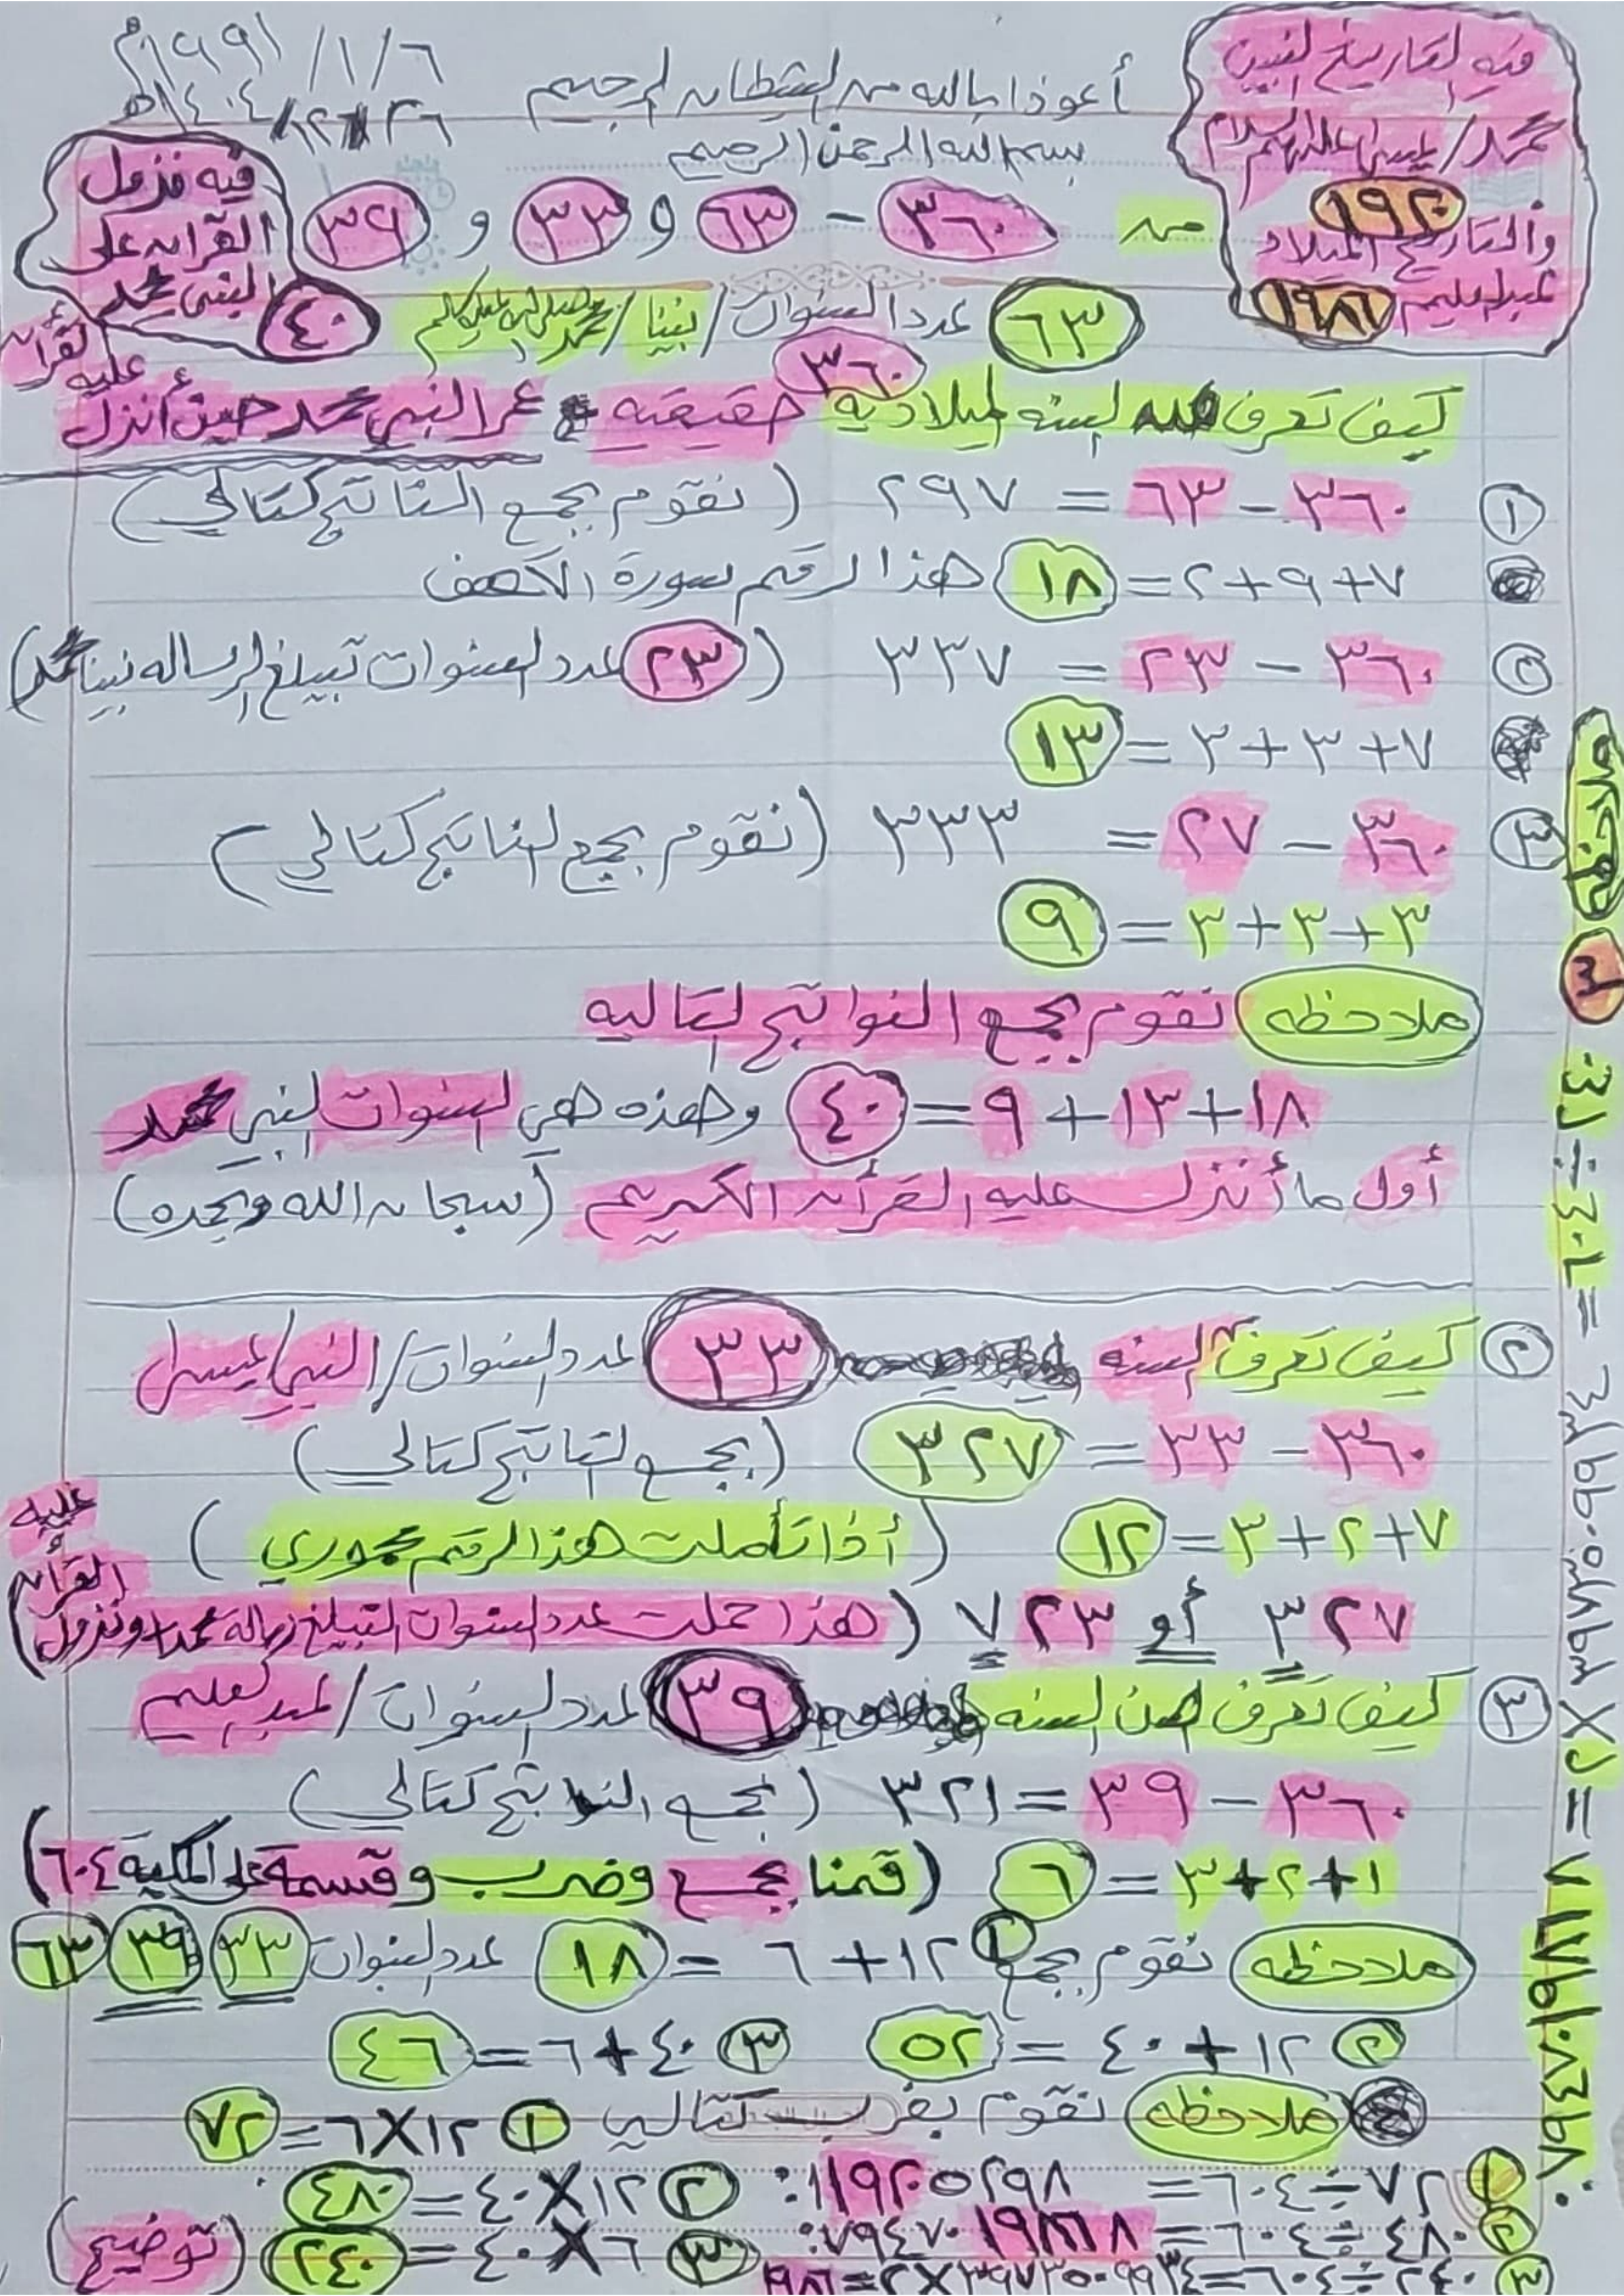 ١٩٩١/١/٦م
أعوذ بالله من الشيطان الرجيم
بسم الله الرحمن الرحيم
فيه التاريخ لنبين
محمد/عيسى عليهم السلام
١٩٢٠
والتاريخ الميلاد
عبدالعليم ١٩٨٦
فيه نزول
القرآن على
النبي محمد
٤٠
من ٣٦٠ - ٦٣ و ٣٣ و ٣٩
٦٣ عدد السنوات/نبينا/محمد صلى الله عليه وسلم
كيف تعرف السنه الميلاديه ٣٦٠ حقيقيه عمر النبي محمد حين أنزل
عليه
القرآن
١ ٣٦٠ - ٦٣ = ٢٩٧ (نقوم بجمع الناتج كتالي)
٧+٩+٢= ١٨ هذا الرقم سورة الكهف
٣٦٠ - ٢٣ = ٣٣٧ (٢٣ عدد السنوات تبيلغ الرساله نبينا محمد)
٧+٣+٣ = ١٣
٣ ٣٦٠ - ٢٧ = ٣٣٣ (نقوم بجمع الناتج كتالي)
٣+٣+٣ = ٩
ملاحظه نقوم بجمع النواتج التاليه
١٨+١٣+٩=٤٠ وهذه هي السنوات النبي محمد
أول ما أنزل عليه القرآن الكريم (سبحان الله وبحمده)
٢ كيف تعرف السنه ٣٣ عدد السنوات/النبي/عيسى
٣٦٠ - ٣٣ = ٣٢٧ (بجمع الناتج كتالي)
٧+٢+٣=١٢ (أذا تأملت هذا الرقم محوري)
٣٢٧ أو ٧٢٣ (هذا حملت عدد السنوات التبيلغ رسالة محمد ونزول
القرآن
عليه
٣ كيف تعرف السنه ٣٩ عدد السنوات/عبدالعليم
٣٦٠ - ٣٩ = ٣٢١ (بجمع النواتج كتالي)
١+٢+٣ = ٦ (قمنا بجمع وضرب وقسمة على المكية ٦٠٤)
ملاحظه نقوم بجمع ١ ١٢+٦ = ١٨ عدد السنوات ٣٣ ٣٩ ٦٣
٢ ١٢+٤٠ = ٥٢ ٣ ٤٠+٦=٤٦
ملاحظه نقوم بضرب كتالي ١ ١٢×٦=٧٢
٧٢÷٦٠٤= ٠.١١٩٢٠٥٢٩٨ ٢ ١٢×٤٠=٤٨٠
٢ ٤٨٠÷٦٠٤= ٣ ٦×٤٠=٢٤٠ (توضيح)
٣ ٢٤٠÷٦٠٤=
ملاحظه ٣